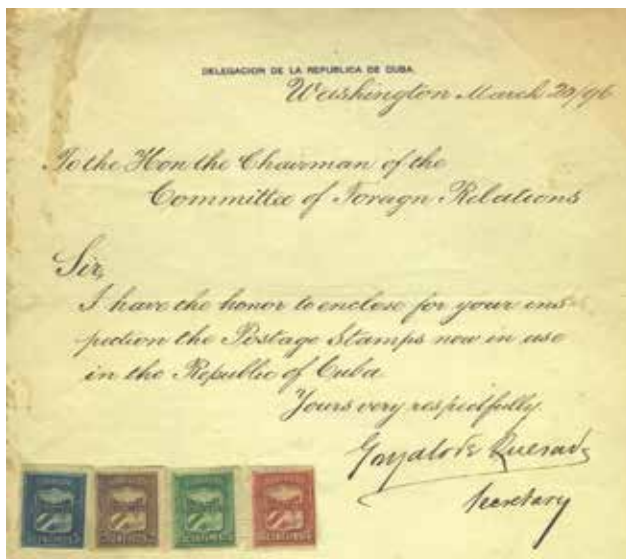 DELEGACION DE LA REPUBLICA DE CUBA.
Washington March 20/96
To the Hon the Chairman of the
Committee of Foreign Relations
Sir,
I have the honor to enclose for your ins-
pection the Postage Stamps now in use
in the Republic of Cuba
Yours very respectfully
Gonzalo de Quesada
Secretary